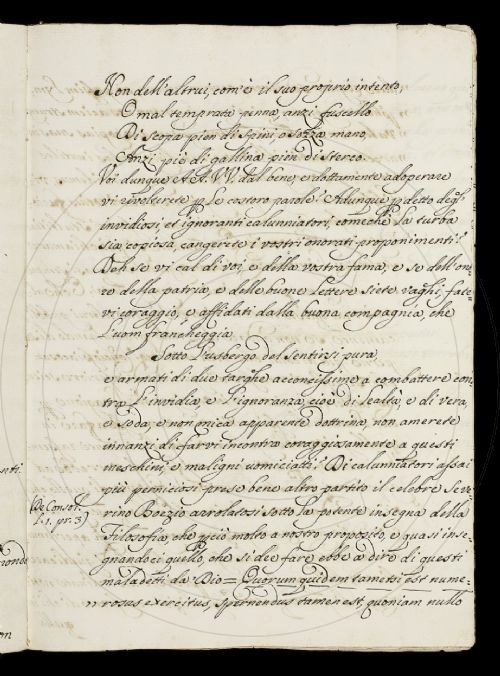 Non dell'altrui, com'è il suo proprio intento,
O mal temprata penna, anzi fuscello
Di scopa pien di spini, o sozza mano,
Anzi piè di gallina pien di sterco.
Voi dunque AA. VV. dal bene, e dottamente adoperare
vi rivolterete p le costoro parole? Adunque p detto degl'
invidiosi, et ignoranti calunniatori, comechè la turba
sia copiosa, cangerete i vostri onorati proponimenti?
Deh se vi cal di voi, e della vostra fama, e se dell'ono-
re della patria, e delle buone lettere siete vaghi, fate-
vi coraggio, e affidati dalla buona compagnia, che
l'uom francheggia
Sotto l'usbergo del sentirsi pura,
e armati di due targhe acconcissime a combattere con-
tra l'invidia, e l'ignoranza, cioè di lealtà, e di vera,
e soda, e non mica apparente dottrina, non amerete
innanzi di farvi incontra coraggiosamente a questi
meschini, e maligni uomiciatti? Di calunniatori assai
più perniciosi prese bene altro partito il celebre Seve-
(De Consol. l. 1. pr. 3.)
rino Boezio arrolatosi sotto la potente insegna della
Filosofia, che più molto a nostro proposito, e quasi inse-
gnandoci quello, che si dee fare ebbe a dire di questi
maladetti da Dio = Quorum quidem tametsi est nume-
rosus exercitus, spernendus tamen est, quoniam nullo